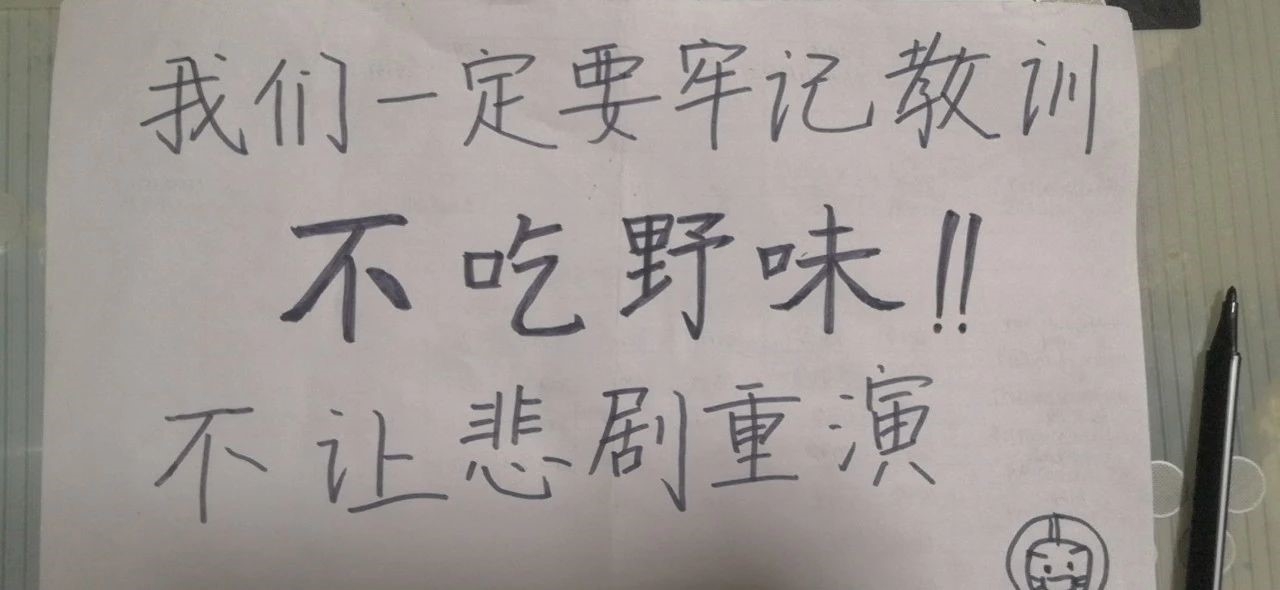 我们一定要牢记教训
不吃野味!!
不让悲剧重演